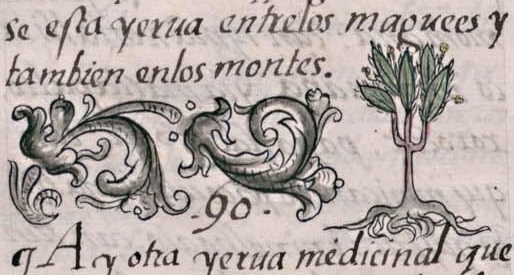 se esta yerua entrelos maguees y
tambien enlos montes.
.90.
¶ Ay otra yerua medicinal que